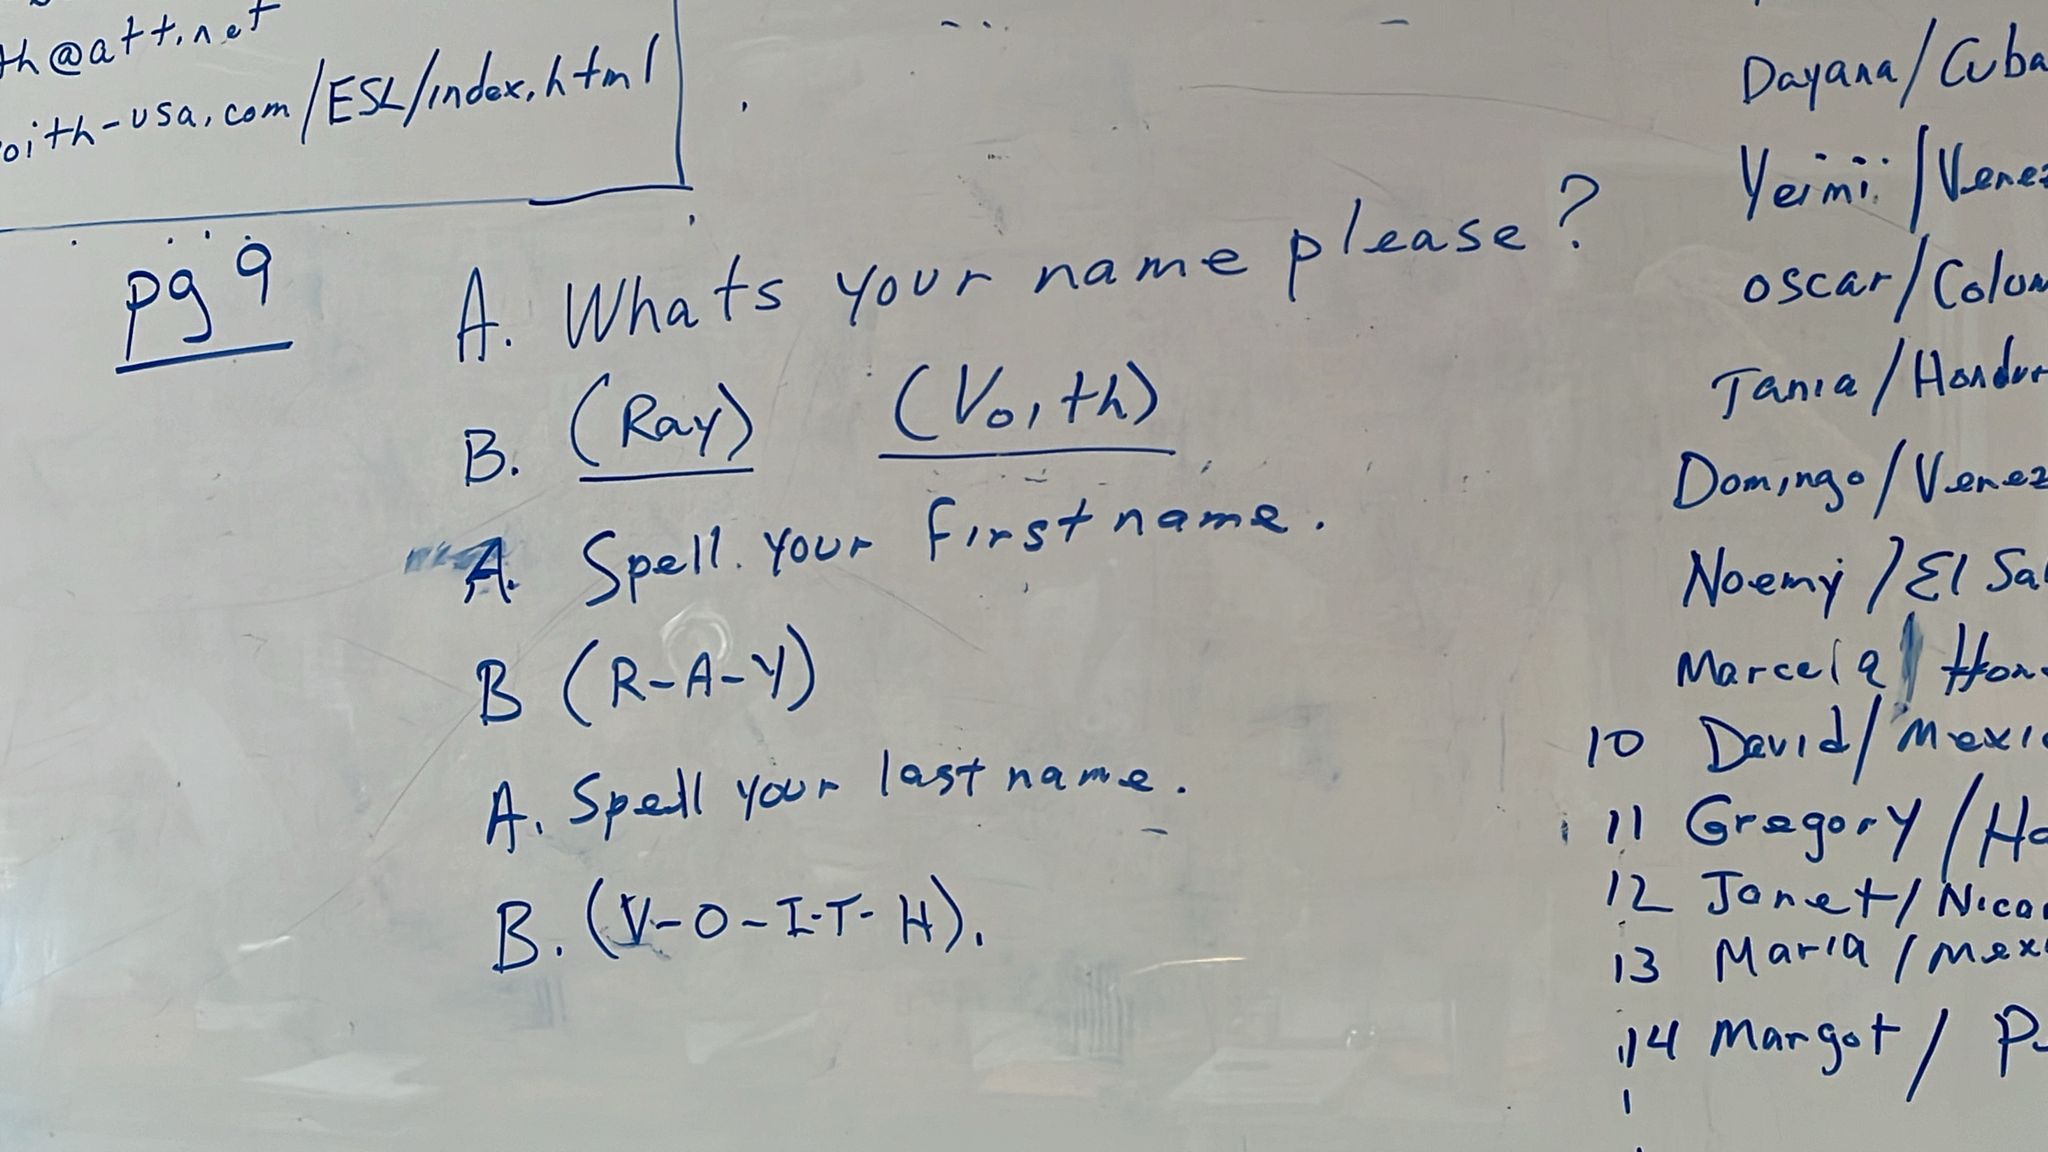 th@att.net
oith-usa.com/ESL/index.html
pg 9
A. Whats your name please?
B. (Ray) (Voith)
A. Spell your first name.
B (R-A-Y)
A. Spell your last name.
B. (V-O-I-T-H).
Dayana/Cuba
Yeimi/Venez
oscar/Colum
Tania/Hondur
Domingo/Venez
Noemy/El Sal
Marcela/Hon
10 David/Mexic
11 Gregory/Ho
12 Janet/Nicar
13 Maria/Mexi
14 Margot/P